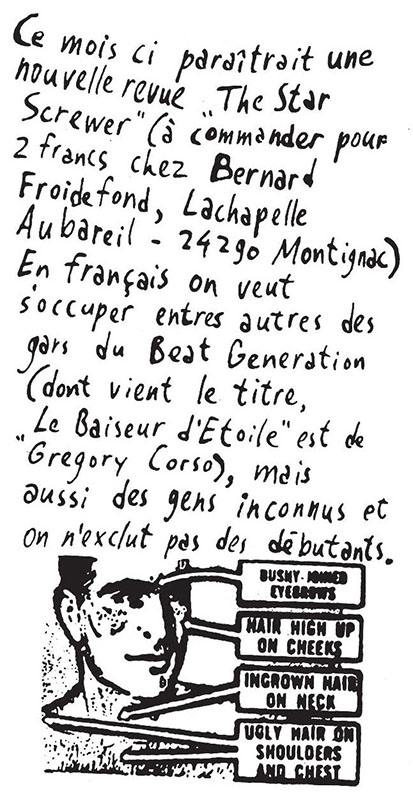 Ce mois ci paraîtrait une
nouvelle revue "The Star
Screwer" (à commander pour
2 francs chez Bernard
Froidefond, Lachapelle
Aubareil - 24290 Montignac)
En français on veut
s'occuper entres autres des
gars du Beat Generation
(dont vient le titre,
"Le Baiseur d'Etoile" est de
Gregory Corso), mais
aussi des gens inconnus et
on n'exclut pas des débutants.
BUSHY-JOINED
EYEBROWS
HAIR HIGH UP
ON CHEEKS
INGROWN HAIR
ON NECK
UGLY HAIR ON
SHOULDERS
AND CHEST